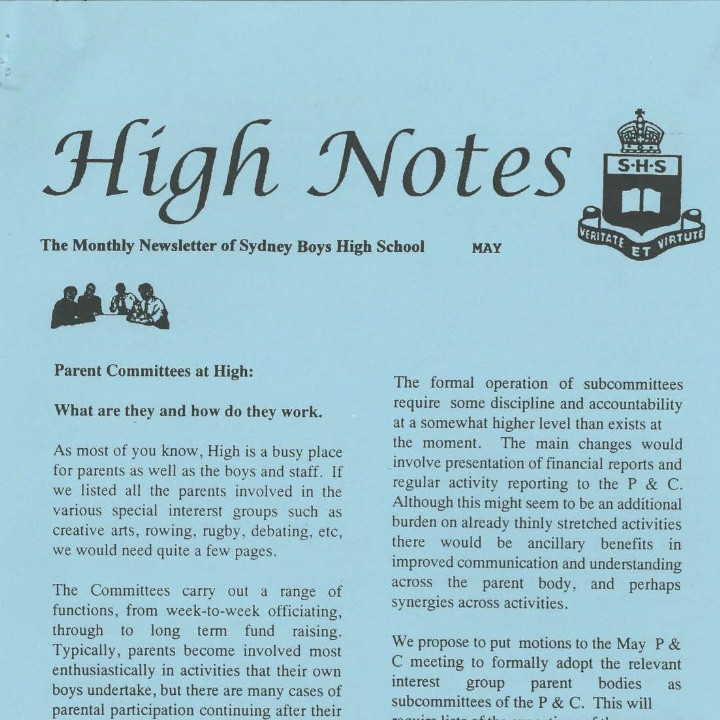 High Notes
S·H·S
VERITATE ET VIRTUTE
The Monthly Newsletter of Sydney Boys High School MAY
Parent Committees at High:
What are they and how do they work.
As most of you know, High is a busy place
for parents as well as the boys and staff. If
we listed all the parents involved in the
various special intererst groups such as
creative arts, rowing, rugby, debating, etc,
we would need quite a few pages.
The Committees carry out a range of
functions, from week-to-week officiating,
through to long term fund raising.
Typically, parents become involved most
enthusiastically in activities that their own
boys undertake, but there are many cases of
parental participation continuing after their
The formal operation of subcommittees
require some discipline and accountability
at a somewhat higher level than exists at
the moment. The main changes would
involve presentation of financial reports and
regular activity reporting to the P & C.
Although this might seem to be an additional
burden on already thinly stretched activities
there would be ancillary benefits in
improved communication and understanding
across the parent body, and perhaps
synergies across activities.
We propose to put motions to the May P &
C meeting to formally adopt the relevant
interest group parent bodies as
subcommittees of the P & C. This will